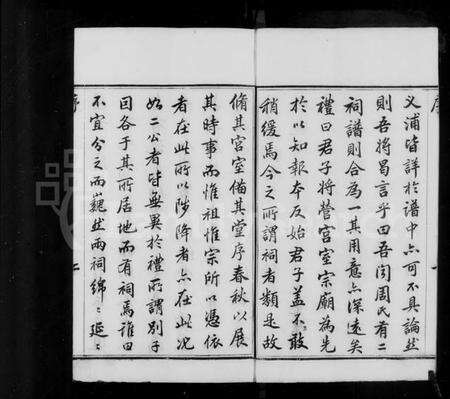 序
乂浦皆詳於譜中亦可不具論然
則吾將曷言乎曰吾闻周氏有二
祠譜則合為一其用意亦深遠矣
禮曰君子將營宮室宗廟為先
於以知報本反始君子盖不敢
稍緩焉今之所謂祠者類是故
脩其宮室備其堂序春秋以展
其時事而惟祖惟宗所以憑依
者在此所以陟降者亦在此况
如二公者皆無異於禮所謂別子
曰各于其所居地而有祠焉誰曰
不宜分之而巍然兩祠綿〻延〻
序
二